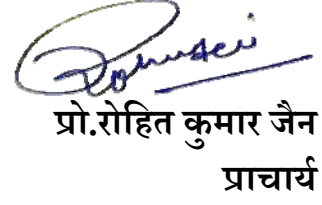 प्रो.रोहित कुमार जैन
प्राचार्य